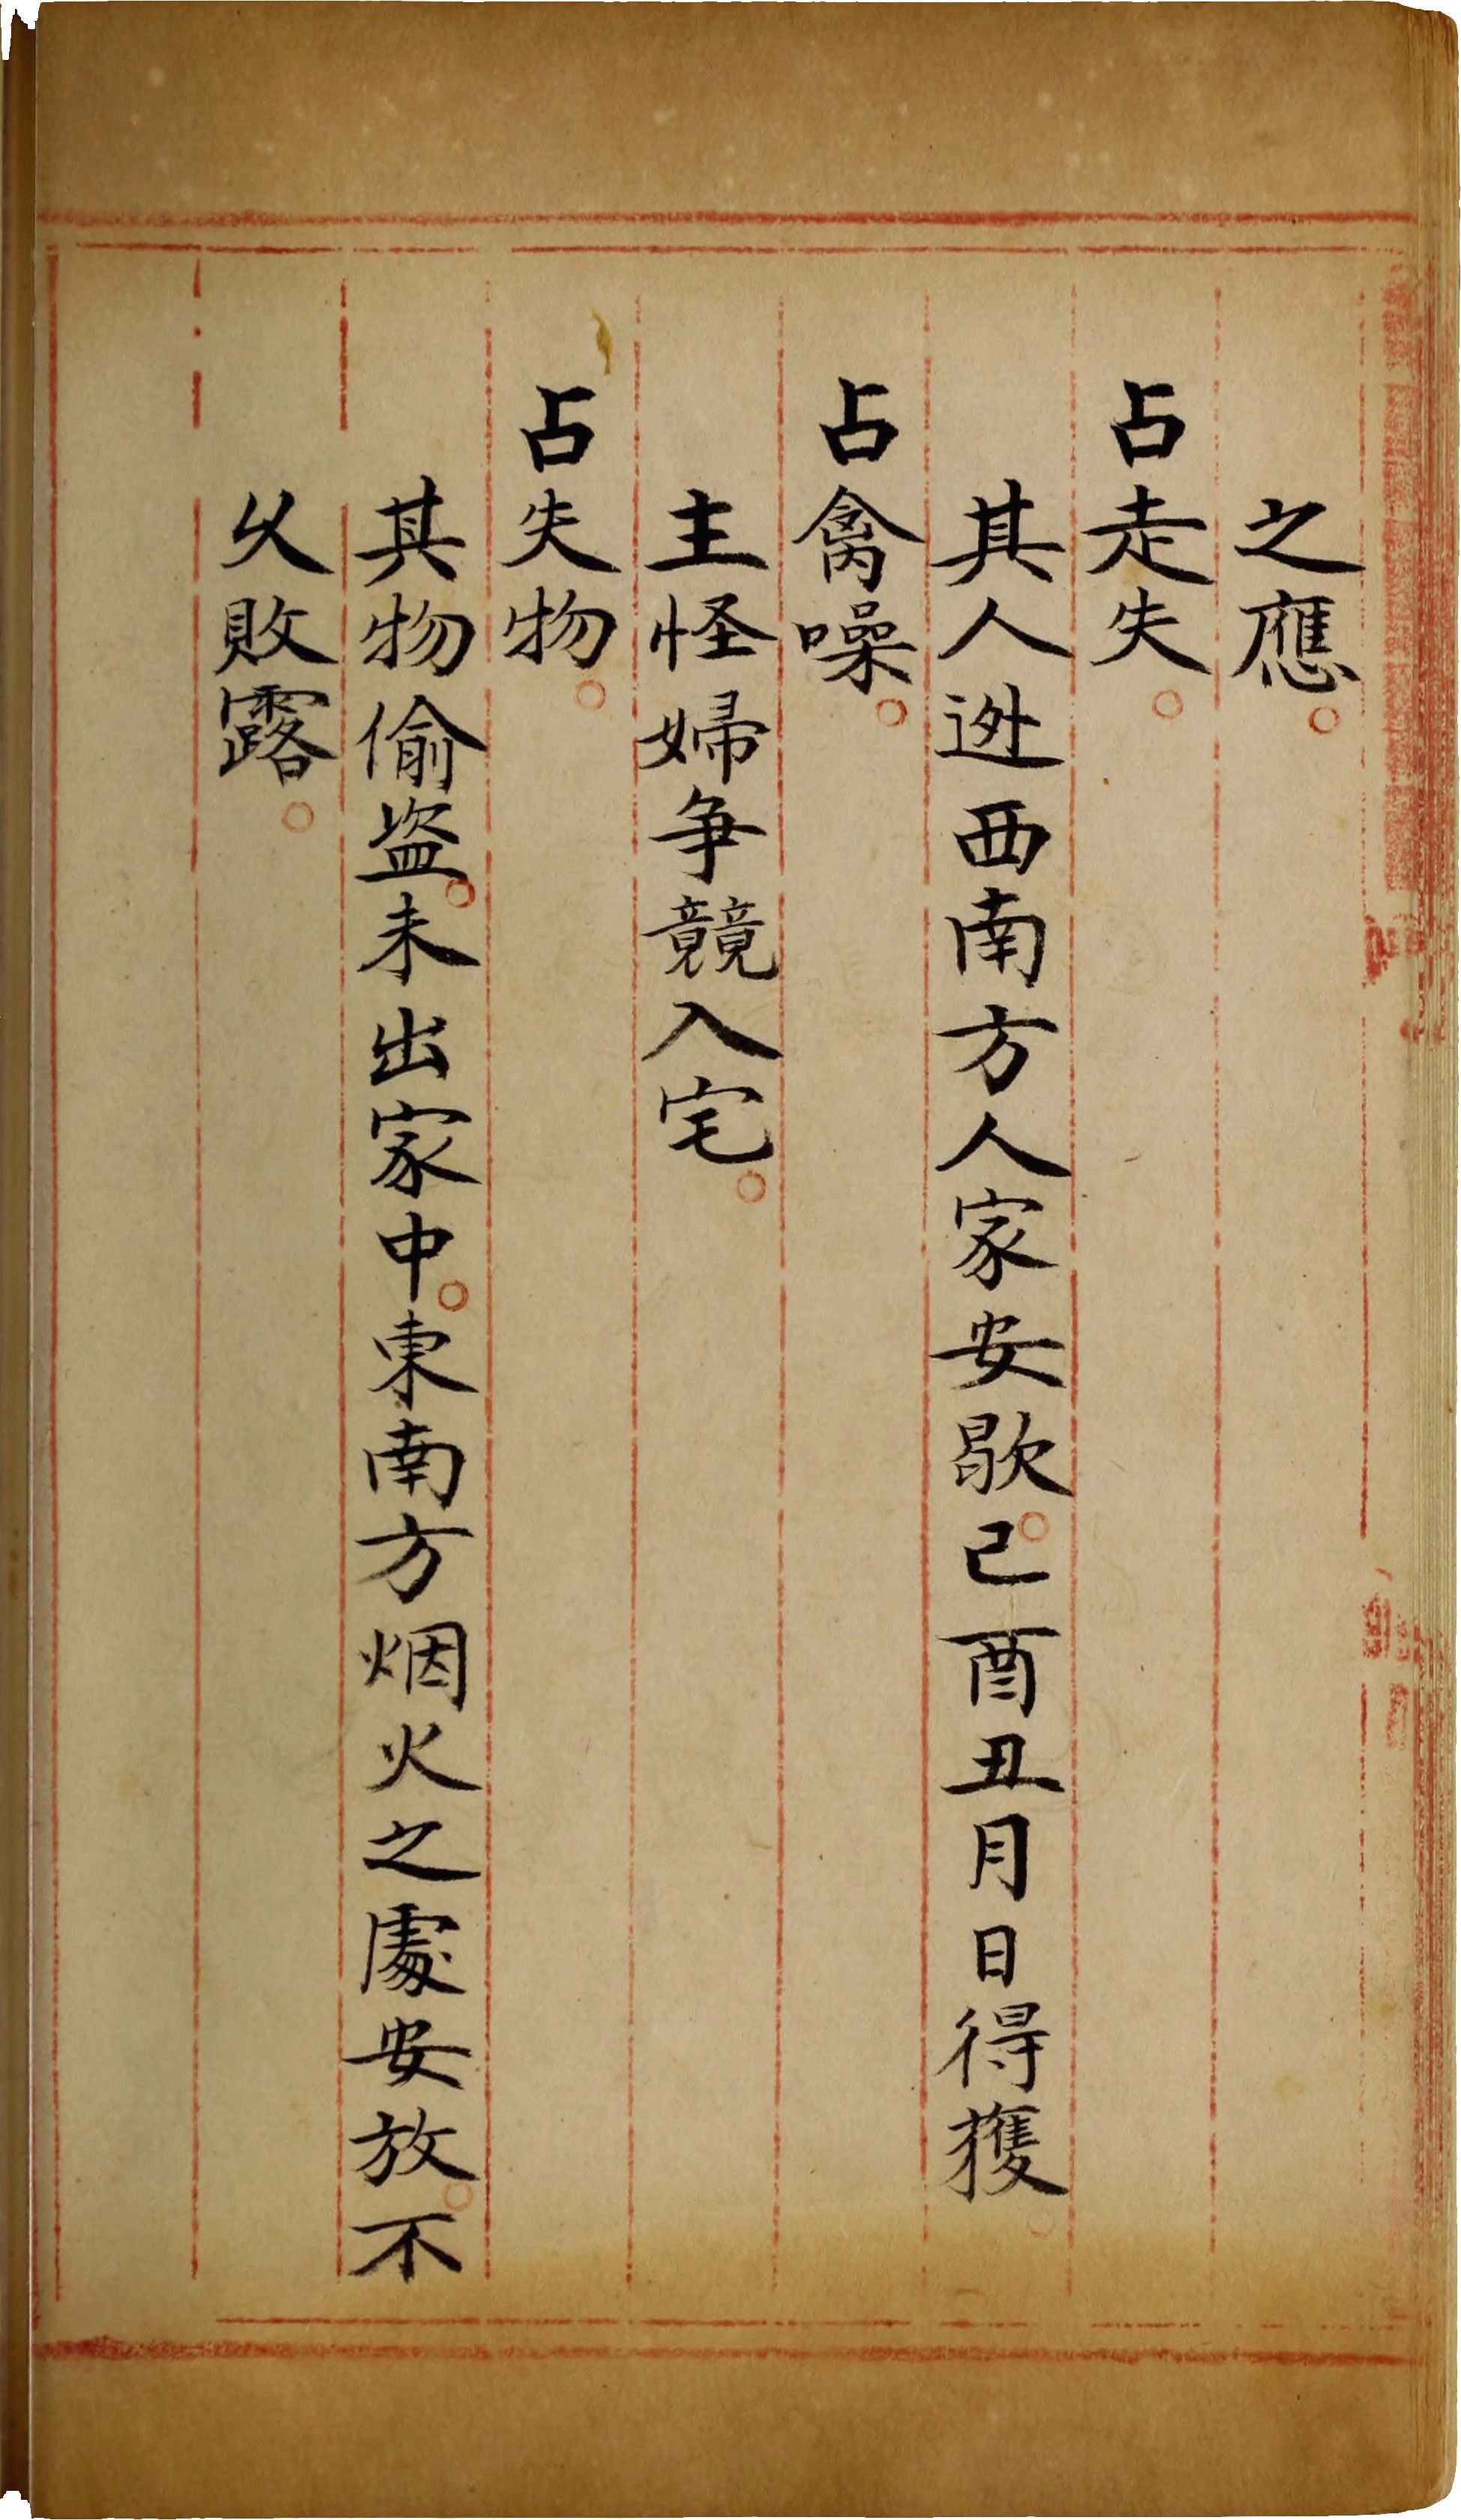 之應。
占走失。
其人迯西南方人家安歇。己酉丑月日得獲。
占禽噪。
主怪婦争競入宅。
占失物。
其物偷盗。未出家中。東南方烟火之處安放。不
乆敗露。